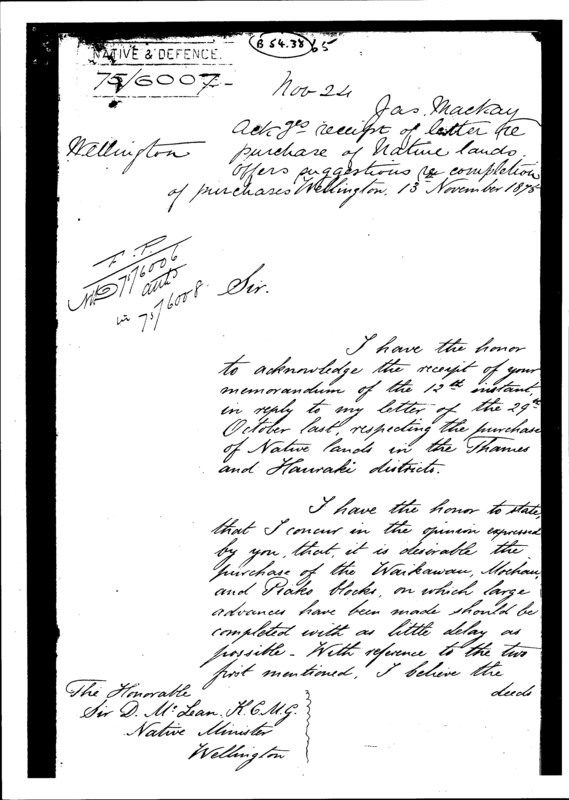 B 54.38/65
NATIVE & DEFENCE.
75/6007
Nov 24
Jas. Mackay
Ackges receipt of letter re
purchase of Native lands.
Offers suggestions re completion
of purchases
Wellington
Wellington, 13th November 1875
F. P.
N&D 75/6006
in 75/6008
Sir.
I have the honor
to acknowledge the receipt of your
memorandum of the 12th instant,
in reply to my letter of the 29th
October last, respecting the purchase
of Native lands in the Thames
and Hauraki districts.
I have the honor to state,
that I concur in the opinion expressed
by you, that, it is desirable the
purchase of the Waikawau, Moehau,
and Piako blocks, on which large
advances have been made should be
completed with as little delay as
possible - With reference to the two
first mentioned, I believe the
deeds
The Honorable
Sir D. McLean. K.C.M.G.
Native Minister
Wellington